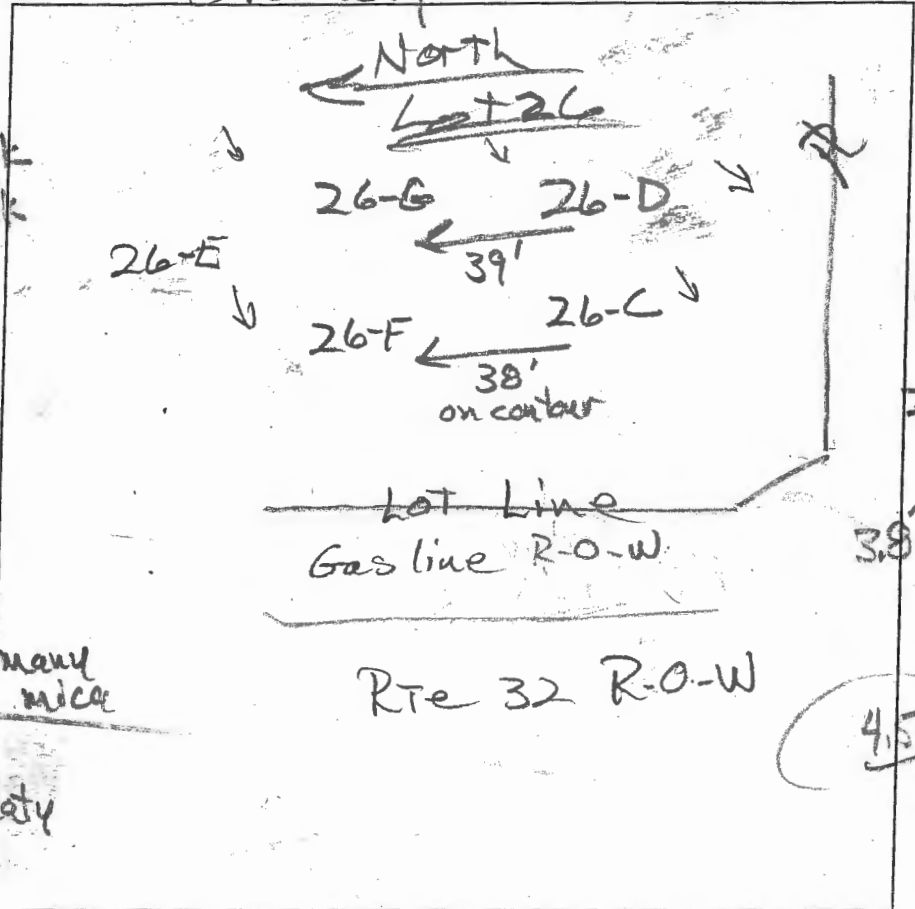 North
Lot 26
26-G
26-D
39'
26-E
26-C
26-F
38'
on contour
Lot Line
Gas line R-O-W
3.8'
many
mica
Rte 32 R-O-W
4.5